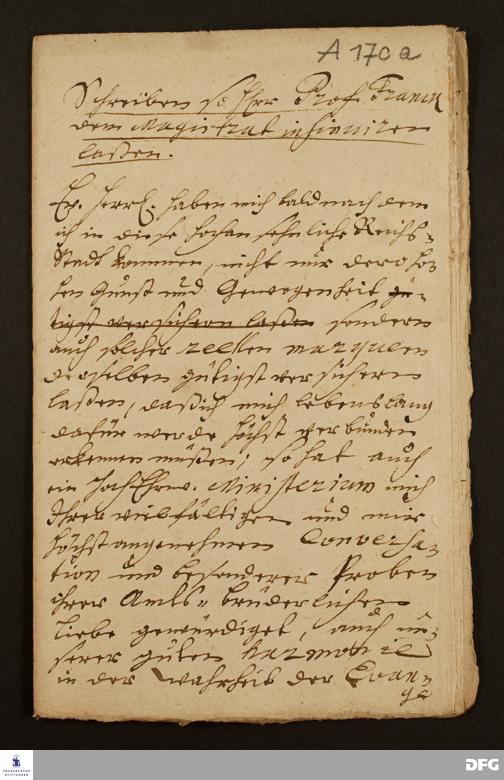 A 170 a
Schreiben so Herr Prof. Franck
dem Magistrat insinuiren
laßen.
Ew. Herrl. haben mich bald nach dem
ich in diese hochansehnliche Reichs-
Stadt kommen, nicht nur dero ho-
hen Gunst und Gewogenheit gü-
tigst versichern laßen sondern
auch solcher reellen marquen
derselben gütigst versichern
laßen, daß ich mich lebenslang
dafür werde höchst verbunden
erkennen müßen; so hat auch
ein HochEhrw. Ministerium mich
Ihrer vielfältigen und mir
höchstangenehmen Conversa-
tion und besonderer Proben
ihrer Amts-brüderlichen
Liebe gewürdiget, auch un-
serer guten harmonie
in der Wahrheit der Evan-
ge
FRANCKESCHE
STIFTUNGEN
DFG